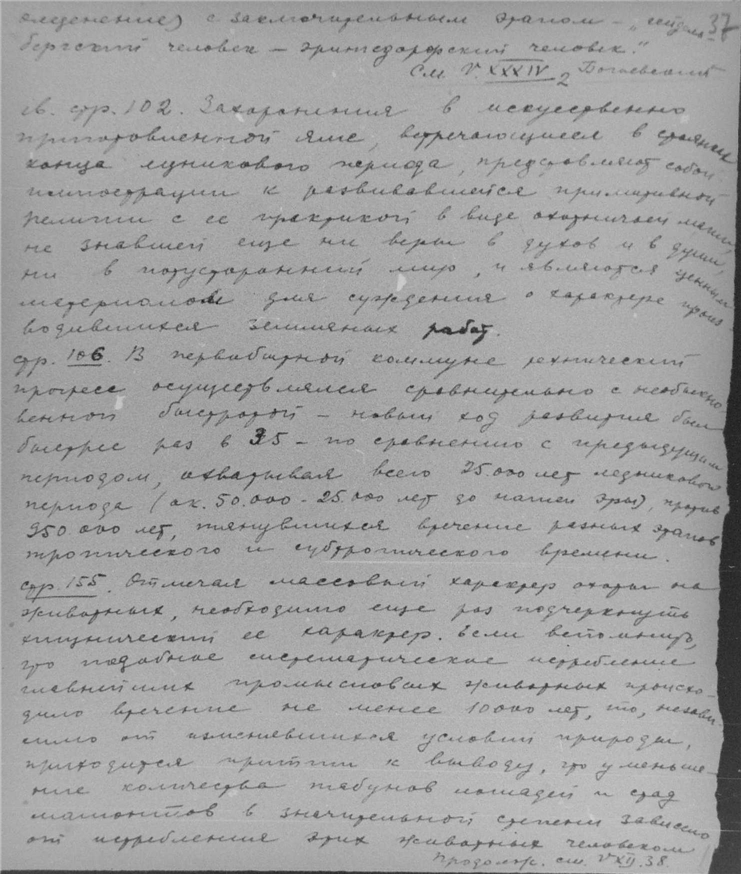 37
оледенение) с заключительным этапом - "гейдель
бергский человек - эрингсдорфский человек."
См. V XXXIV 2 Богаевский
св. стр. 102. Захоронения в искусственно
приготовленной яме, встречающиеся в стоянках
конца ледникового периода, представляют собой
иллюстрации к развивавшейся примитивной
религии с ее практикой в виде охотничьей магии,
не знавшей еще ни веры в духов и в души,
ни в потусторонний мир, и являются ценным
материалом для суждения о характере произ-
водившихся земляных работ.
стр. 106. В первобытной коммуне технический
прогресс осуществлялся сравнительно с необыкно
венной быстротой - новый ход развития был
быстрее раз в 35 - по сравнению с предыдущим
периодом, охватывая всего 25.000 лет ледникового
периода (ок. 50.000 - 25.000 лет до нашей эры), против
950.000 лет, тянувшихся втечение разных этапов
тропического и субтропического времени.
стр. 155. Отмечая массовый характер охоты на
животных, необходимо еще раз подчеркнуть
хищнический ее характер. Если вспомнить,
что подобное систематическое истребление
главнейших промысловых животных происхо-
дило втечение не менее 10000 лет, то, незави
симо от изменявшихся условий природы,
приходится притти к выводу, что уменьше-
ние количества табунов лошадей и стад
мамонтов в значительной степени зависело
от истребления этих животных человеком
Продолж. см. V XII. 38.